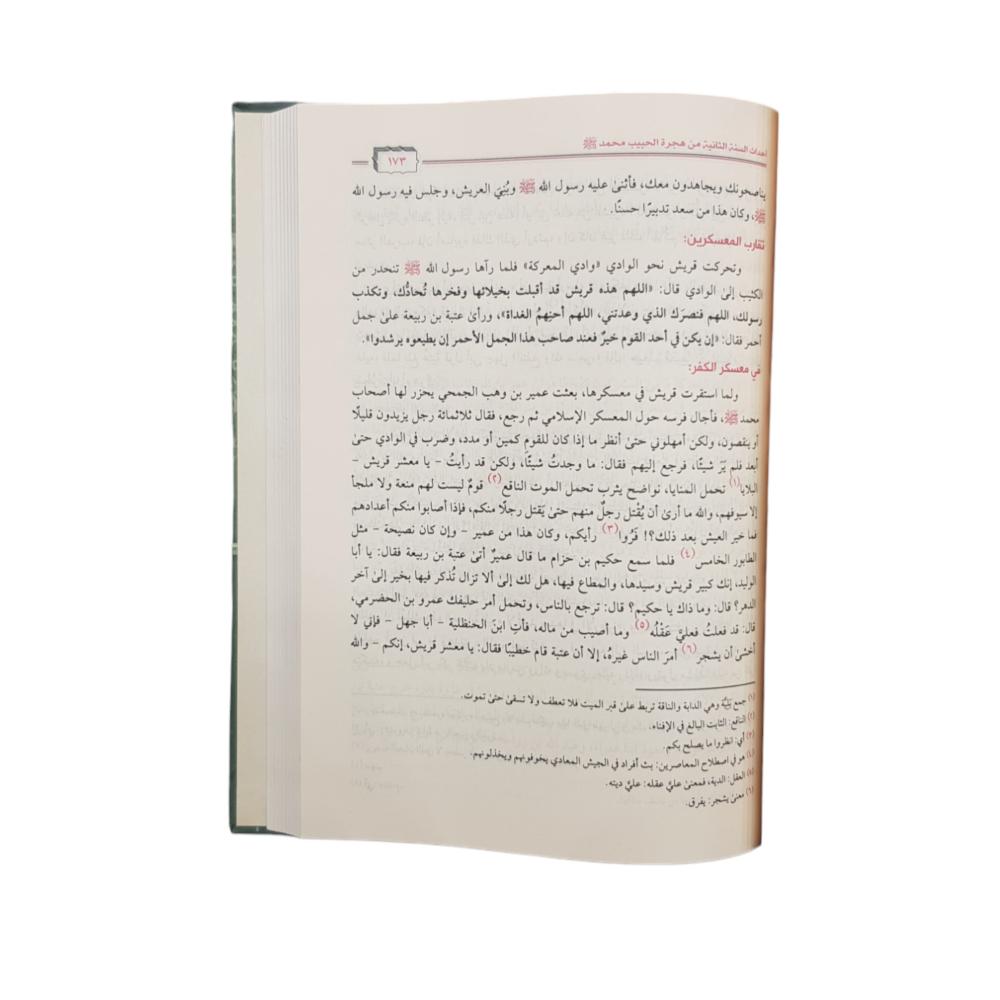 أحداث السنة الثانية من هجرة الحبيب محمد ﷺ
١٧٣
يناصحونك ويجاهدون معك، فأثنىٰ عليه رسول الله ﷺ وبُنِيَ العريش، وجلس فيه رسول الله
ﷺ، وكان هذا من سعد تدبيرًا حسنًا.
تقارب المعسكرين:
وتحركت قريش نحو الوادي «وادي المعركة» فلما رآها رسول الله ﷺ تنحدر من
الكثيب إلىٰ الوادي قال: «اللهم هذه قريش قد أقبلت بخيلائها وفخرها تُحادُّك، وتكذب
رسولك، اللهم فنصرَك الذي وعدتني، اللهم أحنِهمُ الغداة»، ورأىٰ عتبة بن ربيعة علىٰ جمل
أحمر فقال: «إن يكن في أحد القوم خيرٌ فعند صاحب هذا الجمل الأحمر إن يطيعوه يرشدوا».
في معسكر الكفر:
ولما استقرت قريش في معسكرها، بعثت عمير بن وهب الجمحي يحزر لها أصحاب
محمد ﷺ، فأجال فرسه حول المعسكر الإسلامي ثم رجع، فقال ثلاثمائة رجل يزيدون قليلًا
أو ينقصون، ولكن أمهلوني حتىٰ أنظر ما إذا كان للقوم كمين أو مدد، وضرب في الوادي حتىٰ
أبعد فلم يَرَ شيئًا، فرجع إليهم فقال: ما وجدتُ شيئًا، ولكن قد رأيتُ - يا معشر قريش -
البلايا(١) تحمل المنايا، نواضح يثرب تحمل الموت الناقع(٢) قومٌ ليست لهم منعة ولا ملجأ
إلا سيوفهم، والله ما أرىٰ أن يُقْتل رجلٌ منهم حتىٰ يَقتل رجلًا منكم، فإذا أصابوا منكم أعدادهم
فما خير العيش بعد ذلك؟! فَرُوا(٣) رأيكم، وكان هذا من عمير - وإن كان نصيحة - مثل
الطابور الخامس(٤) فلما سمع حكيم بن حزام ما قال عميرٌ أتىٰ عتبة بن ربيعة فقال: يا أبا
الوليد، إنك كبير قريش وسيدها، والمطاع فيها، هل لك إلىٰ ألا تزال تُذكر فيها بخير إلىٰ آخر
الدهر؟ قال: وما ذاك يا حكيم؟ قال: ترجع بالناس، وتحمل أمر حليفك عمرو بن الحضرمي،
قال: قد فعلتُ فعليَّ عَقْلُه(٥) وما أصيب من ماله، فأتِ ابنَ الحنظلية - أبا جهل - فإني لا
أخشىٰ أن يشجر(٦) أمرَ الناس غيرهُ، إلا أن عتبة قام خطيبًا فقال: يا معشر قريش، إنكم - والله
(١) جمع بَلِيَّة وهي الدابة والناقة تربط علىٰ قبر الميت فلا تعطف ولا تسقىٰ حتىٰ تموت.
(٢) الناقع: الثابت البالغ في الإفناء.
(٣) أي: انظروا ما يصلح بكم.
(٤) هو في اصطلاح المعاصرين: بث أفراد في الجيش المعادي يخوفونهم ويخذلونهم.
(٥) العقل: الدية، فمعنىٰ عليَّ عقله: عليَّ ديته.
(٦) معنىٰ يشجر: يفرق.